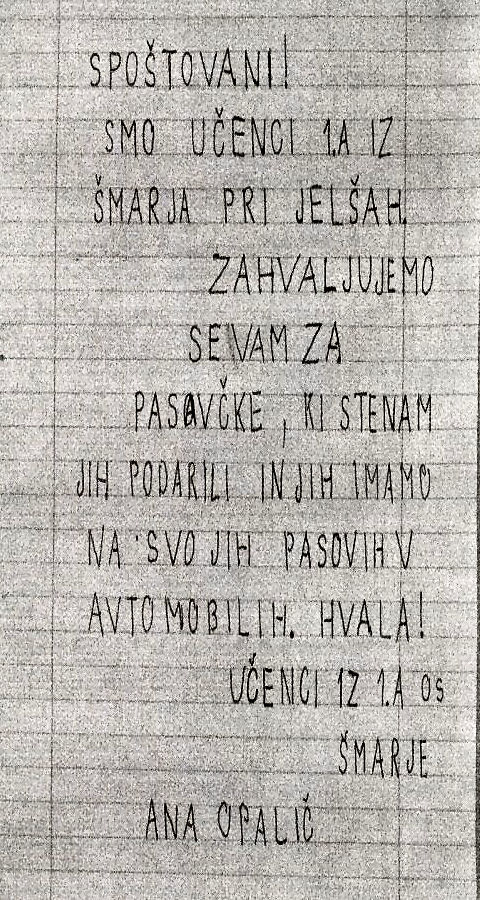 SPOŠTOVANI!
SMO UČENCI 1.A IZ
ŠMARJA PRI JELŠAH.
ZAHVALJUJEMO
SE VAM ZA
PASAVČKE, KI STENAM
JIH PODARILI IN JIH IMAMO
NA SVOJIH PASOVIH V
AVTOMOBILIH. HVALA!
UČENCI IZ 1.A OŠ
ŠMARJE
ANA OPALIČ